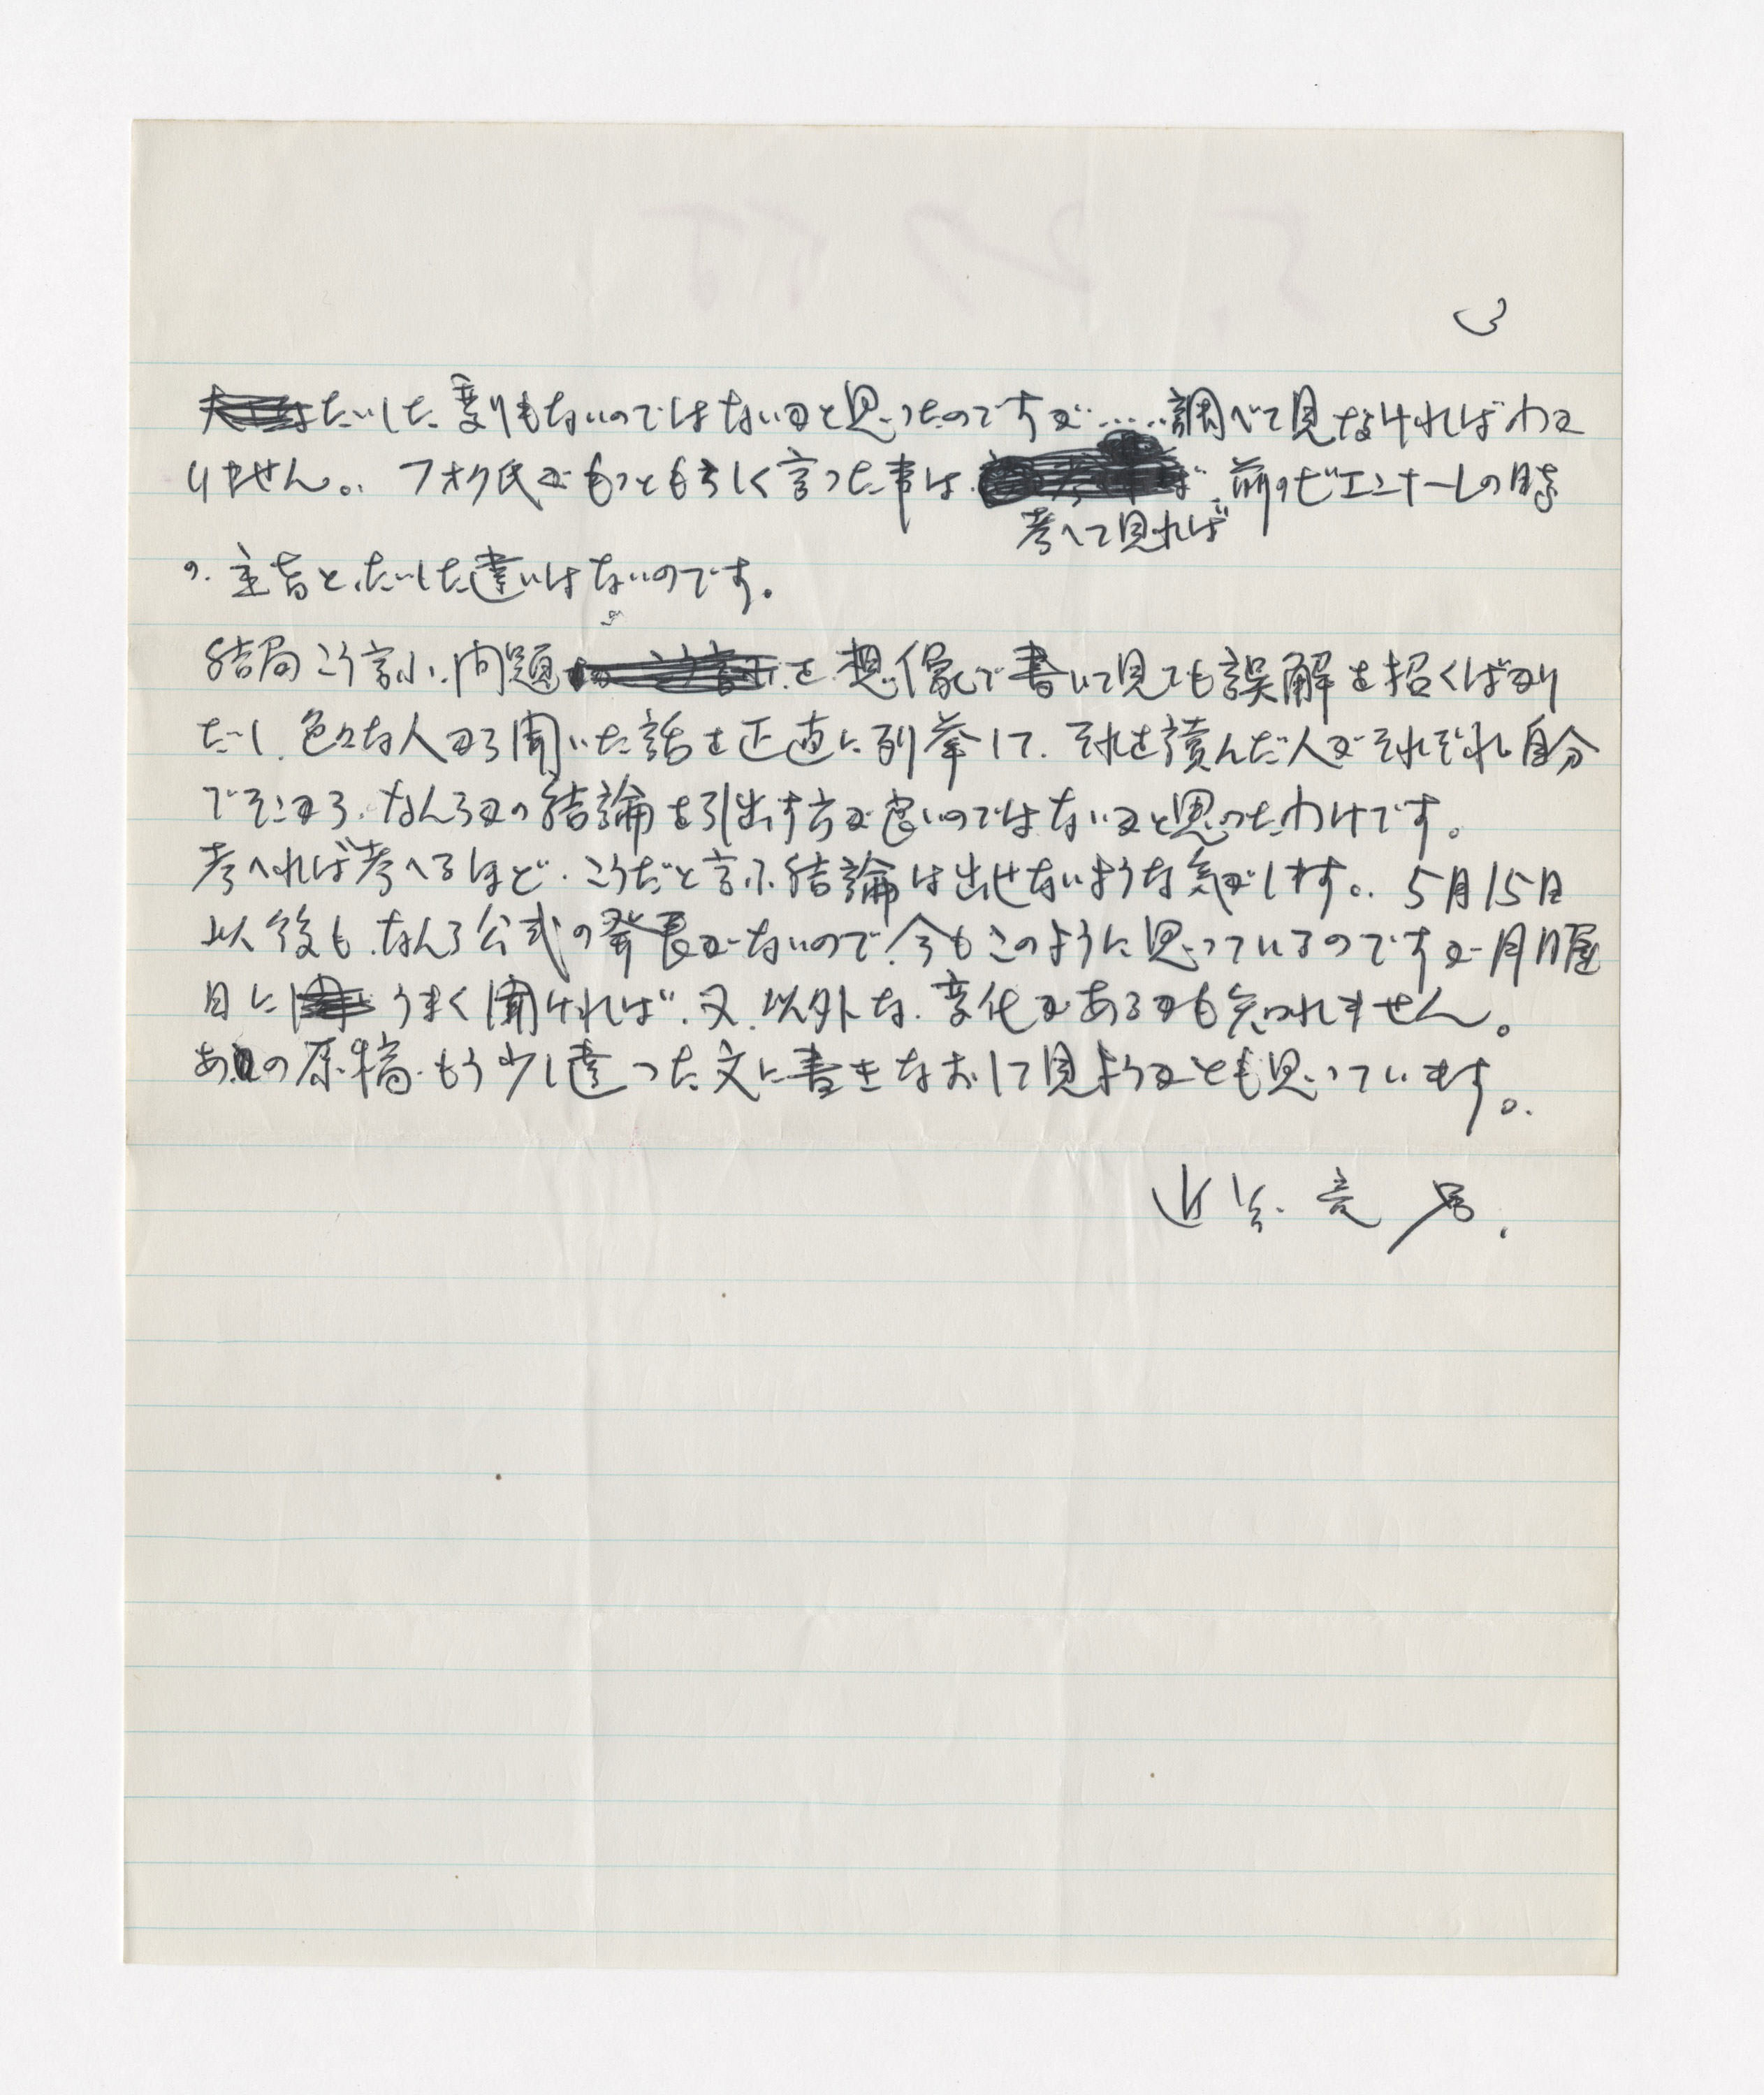 3
だいした変りもないのではないかと思ったのですが……調べて見なければわか
りません。フォク氏がもっともらしく言った事は 前のビエンナーレの時
考へて見れば
の主旨とだいした違いはないのです。
結局こう言ふ問題を想像で書いて見ても誤解を招くばかり
だし、色々な人から聞いた話を正直に列挙して、それを読んだ人がそれぞれ自分
でそこから、なんらかの結論を引出す方が良いのではないかと思ったわけです。
考へれば考へるほど、こうだと言ふ結論は出せないような気がします。5月15日
以後も、なんら公式の発表がないので、今もこのように思っているのですが月曜
日にうまく聞ければ、又、以外な変化があるかも知れません。
あの原稿、もう少し違った文に書きなおして見ようかとも思っています。